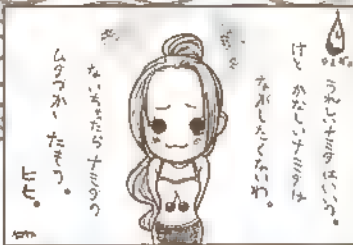 うれしいナミダはいいの。
けど かなしいナミダは
ながしたくないわ。
ないちゃったらナミダの
ムダづかい だもの。
ヒヒ。